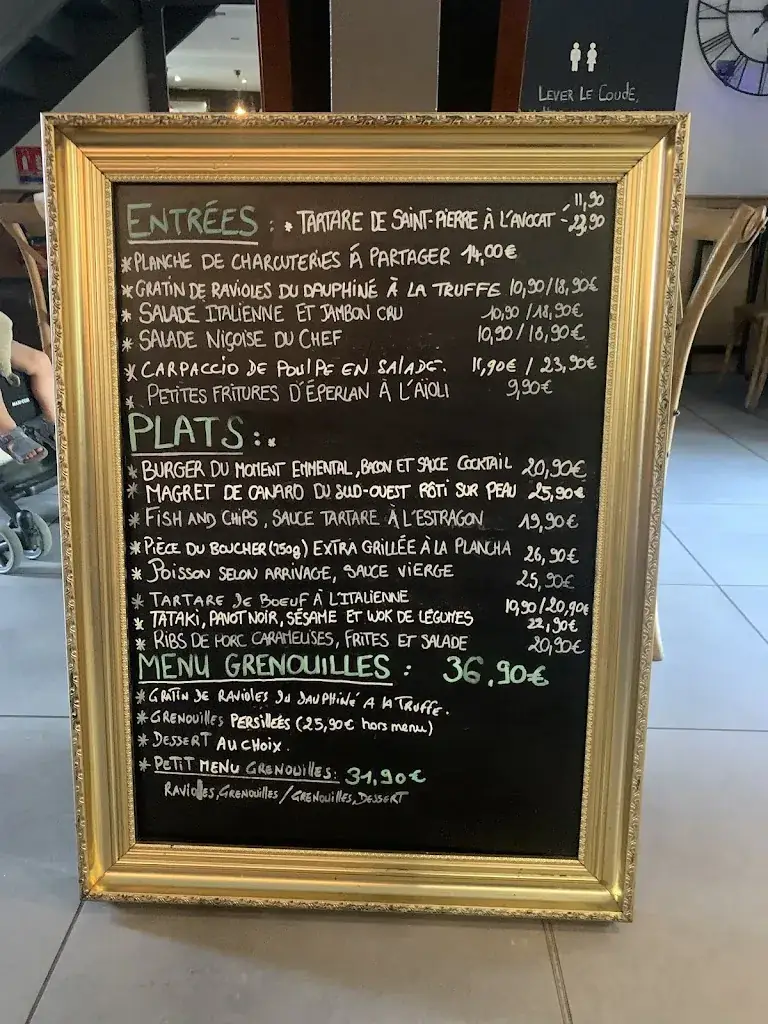 LEVER LE COUDE,
ENTRÉES : * TARTARE DE SAINT-PIERRE À L'AVOCAT - 11,90
- 23,90
* PLANCHE DE CHARCUTERIES Á PARTAGER 14,00€
* GRATIN DE RAVIOLES DU DAUPHINÉ À LA TRUFFE 10,90/18,90€
* SALADE ITALIENNE ET JAMBON CRU 10,90/18,90€
* SALADE NIÇOISE DU CHEF 10,90/18,90€
* CARPACCIO DE POULPE EN SALADE. 11,90€ / 23,90€
* PETITES FRITURES D'ÉPERLAN À L'AÏOLI 9,90€
PLATS : *
* BURGER DU MOMENT EMMENTAL, BACON ET SAUCE COCKTAIL 20,90€
* MAGRET DE CANARD DU SUD-OUEST RÔTI SUR PEAU 25,90€
* FISH AND CHIPS, SAUCE TARTARE À L'ESTRAGON 19,90€
* PIÈCE DU BOUCHER (250g) EXTRA GRILLÉE À LA PLANCHA 26,90€
* POISSON SELON ARRIVAGE, SAUCE VIERGE 25,90€
* TARTARE DE BOEUF À L'ITALIENNE 10,90/20,90€
* TATAKI, PAVOT NOIR, SÉSAME ET WOK DE LÉGUMES 22,90€
* RIBS DE PORC CARAMELISES, FRITES ET SALADE 20,90€
MENU GRENOUILLES : 36,90€
* GRATIN DE RAVIOLES DU DAUPHINÉ A LA TRUFFE.
* GRENOUILLES PERSILLEES (25,90€ hors menu)
* DESSERT AU CHOIX.
* PETIT MENU GRENOUILLES: 31,90€
RAVIOLES, GRENOUILLES / GRENOUILLES, DESSERT